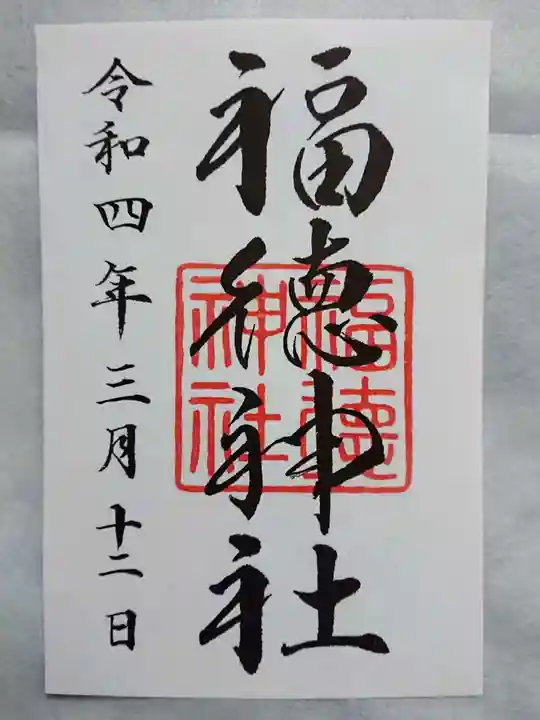 福徳神社
福徳
神社
令和四年三月十二日